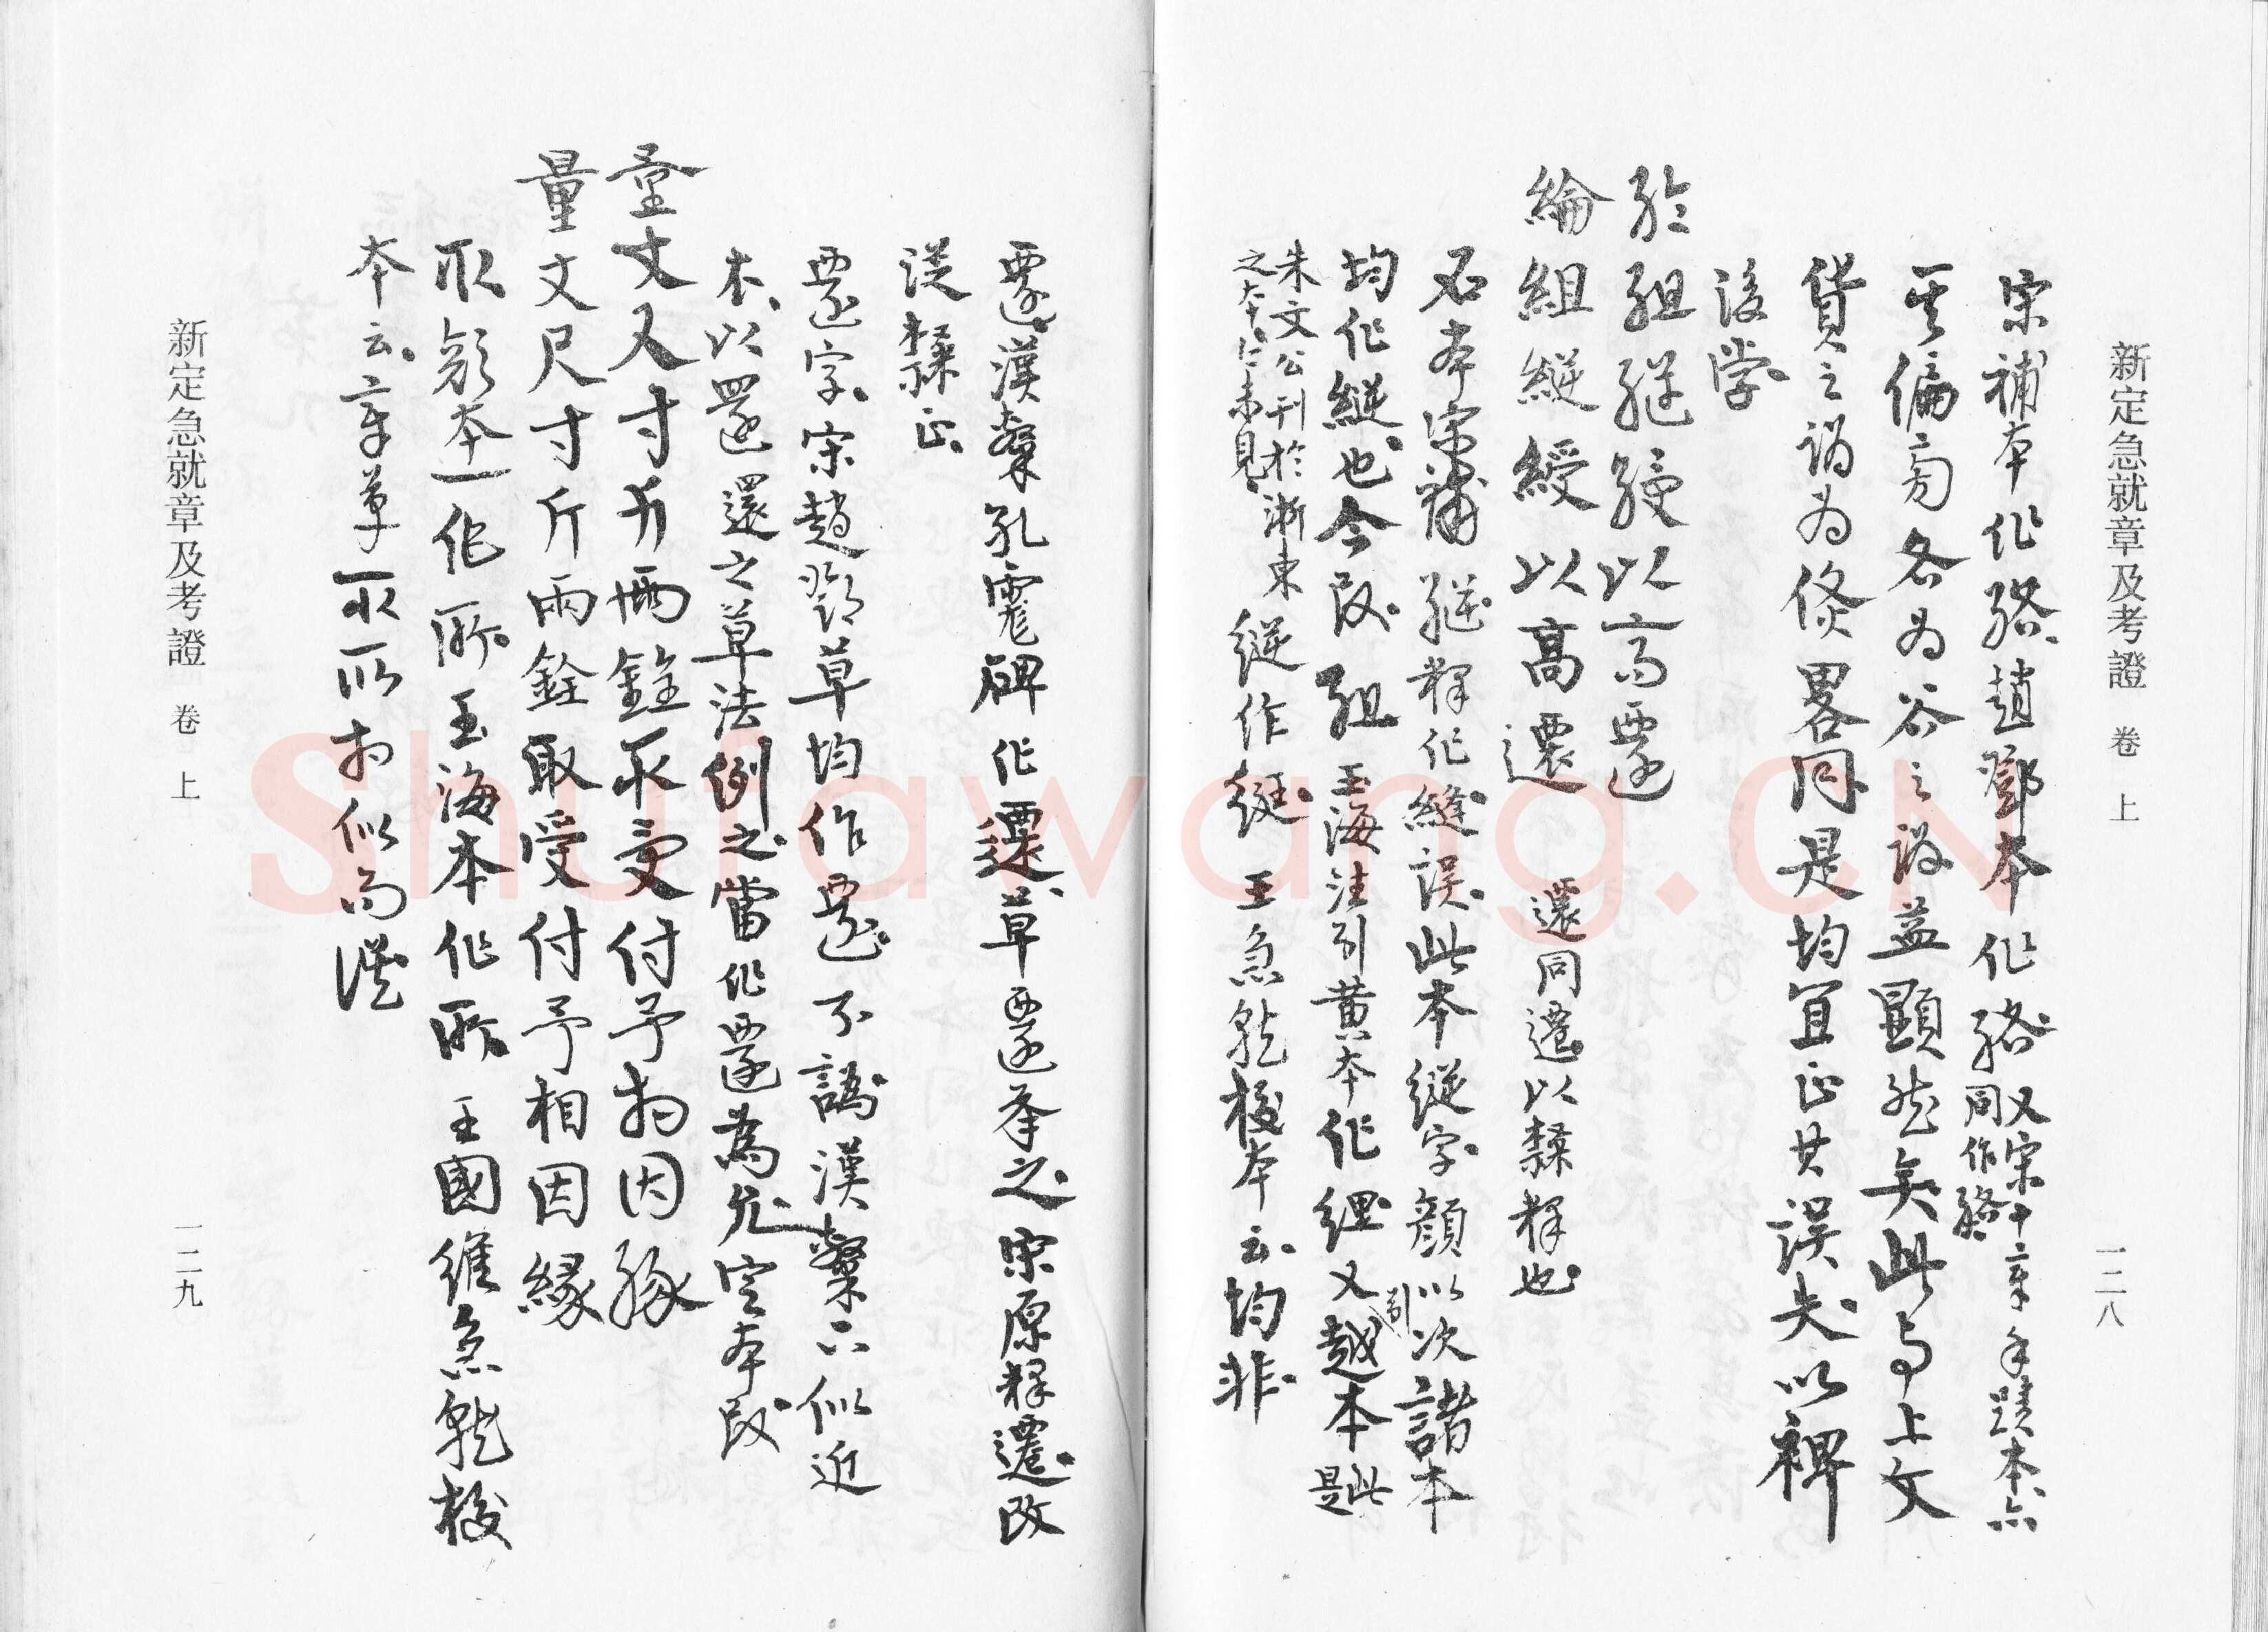 新定急就章及考證 卷上
一二八
宋補本作綹趙鄧本作綹又宋十章手蹟本亦同作綹
其偏旁各為谷之誤益顯然矣此与上文
貸之譌為倏畧同是均宜正其誤失以裨
後学
綸組縱綬以高遷
綸組縱綬以高遷 還同遷以隸釋也
石本宋補縱釋作縫誤此本縱字顔以次諸本
均作縱也今改組玉海注引黄本作縲又越本此是
朱文公刊於浙東之本仁未見縱作綎王急就校本云均非
遷漢隸孔宙碑作遷草遷本之宋原釋遷改
從隸正
遷字宋趙鄧草均作遷不譌漢隸亦似近
本以還還之草法例之當作遷為允定本改
量丈尺寸斤兩銓取受付予相因緣
量丈尺寸斤兩銓取受付予相因緣
取顔本一作所玉海本作所王國維急就校
本云章草取所相似而誤
新定急就章及考證 卷上
一二九
Shufawang.CN